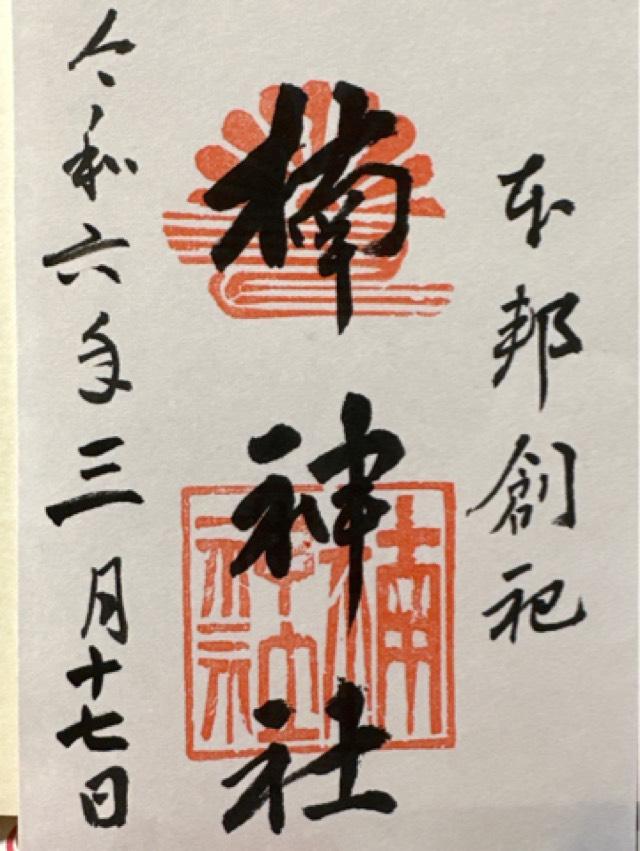 本邦創祀
楠神社
楠
神社
令和六年三月十七日